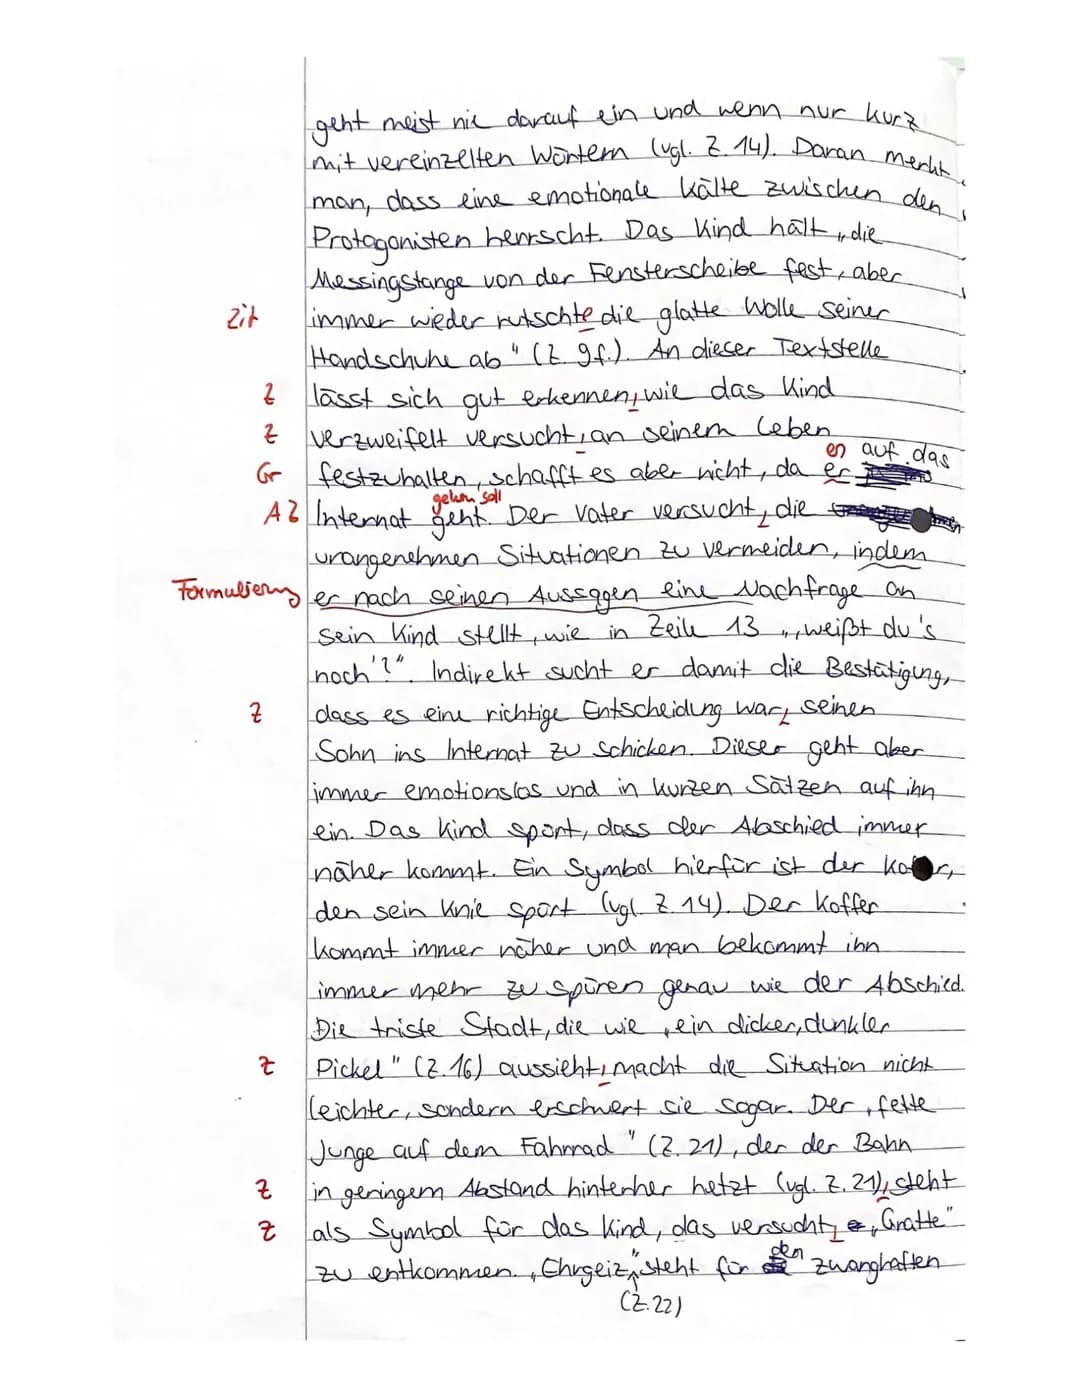 geht meist nie darauf ein und wenn nur kurz
mit vereinzelten Wörtern (vgl. Z. 14). Daran merkt
man, dass eine emotionale Kälte zwischen den
Protagonisten herrscht. Das Kind hält „die
Messingstange von der Fensterscheibe fest, aber
Zit immer wieder rutschte die glatte Wolle seiner
Handschuhe ab" (Z. 9f.). An dieser Textstelle
Z lässt sich gut erkennen, wie das Kind
Z verzweifelt versucht, an seinem Leben
en auf das
Gr festzuhalten, schafft es aber nicht, da er
gehen soll
AZ Internat geht. Der Vater versucht, die
unangenehmen Situationen zu vermeiden, indem
Formulierung er nach seinen Aussagen eine Nachfrage an
sein Kind stellt, wie in Zeile 13 „,weißt du's
noch'?". Indirekt sucht er damit die Bestätigung,
Z dass es eine richtige Entscheidung war, seinen
Sohn ins Internat zu schicken. Dieser geht aber
immer emotionslos und in kurzen Sätzen auf ihn
ein. Das Kind spürt, dass der Abschied immer
näher kommt. Ein Symbol hierfür ist der
den sein Knie spürt (vgl. Z. 14). Der Koffer
kommt immer näher und man bekommt ihn
immer mehr zu spüren genau wie der Abschied.
Die triste Stadt, die wie „ein dicker, dunkler
Z Pickel" (Z. 16) aussieht, macht die Situation nicht
leichter, sondern erschwert sie sogar. Der „fette
Junge auf dem Fahrrad" (Z. 21), der der Bahn
Z in geringem Abstand hinterher hetzt (vgl. Z. 21), steht
Z als Symbol für das Kind, das versucht, „Gratte"
zu entkommen. „Ehrgeiz" steht für den zwanghaften
(Z. 22)